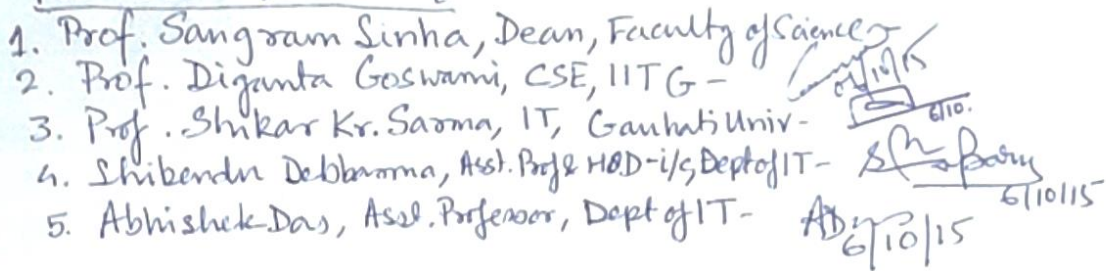 1. Prof. Sangram Sinha, Dean, Faculty of Science - 6/10/15
2. Prof. Diganta Goswami, CSE, IITG - 6/10.
3. Prof. Shikar Kr. Sarma, IT, Gauhati Univ-
4. Shibendu Debbarma, Asst. Prof & HOD-i/c, Dept of IT - 6/10/15
5. Abhishek Das, Asst. Professor, Dept of IT - AD 6/10/15